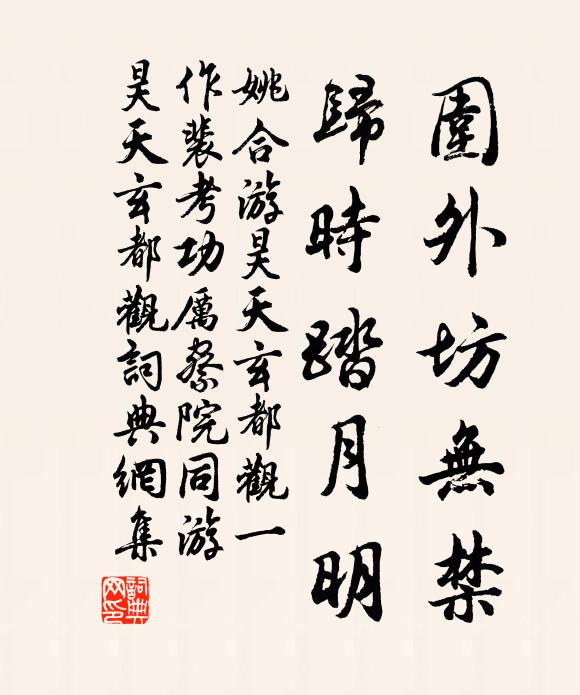 圍外坊無禁
歸時踏月明
姚合游昊天玄都觀一
作裴考功厲察院同游
昊天玄都觀詞典網集
詞典
网印